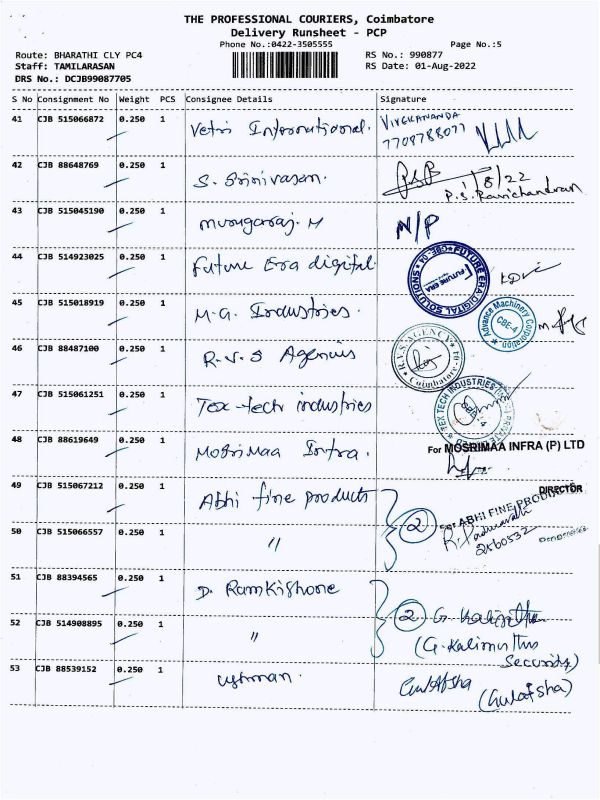 THE PROFESSIONAL COURIERS, Coimbatore
Delivery Runsheet - PCP
Phone No.:0422-3505555 Page No.:5
Route: BHARATHI CLY PC4 RS No.: 990877
Staff: TAMILARASAN RS Date: 01-Aug-2022
DRS No.: DCJB99087705
S No Consignment No Weight PCS Consignee Details Signature
41 CJB 515066872 0.250 1 Vetri International. VIVEKANANDA
7708788077
42 CJB 88648769 0.250 1 S. Srinivasan. 1/8/22
P.S. Ravichandran
43 CJB 515045190 0.250 1 Murugaraj. M N/P
44 CJB 514923025 0.250 1 Future Era digital. FUTURE ERA DIGITAL SOLUTIONS CBE-04 FUTURE ERA
45 CJB 515018919 0.250 1 M.G. Industries. Advance Machinery Corporation CBE-4
46 CJB 88487100 0.250 1 R.V.S Agencies R.V.S. AGENCY Coimbatore-
47 CJB 515061251 0.250 1 Tex-tech industries TEX TECH INDUSTRIES
48 CJB 88619649 0.250 1 MoSriMaa Infra. For MOSRIMAA INFRA (P) LTD
DIRECTOR
49 CJB 515067212 0.250 1 Abhi fine products For ABHI FINE PRODUCTS
2 R. Padmavathi
2560532
50 CJB 515066557 0.250 1 "
51 CJB 88394565 0.250 1 D. RamKishore
2 G. Kalimuthu
52 CJB 514908895 0.250 1 " (G. Kalimuthu
Security)
53 CJB 88539152 0.250 1 Gulafsha
(Gulafsha)